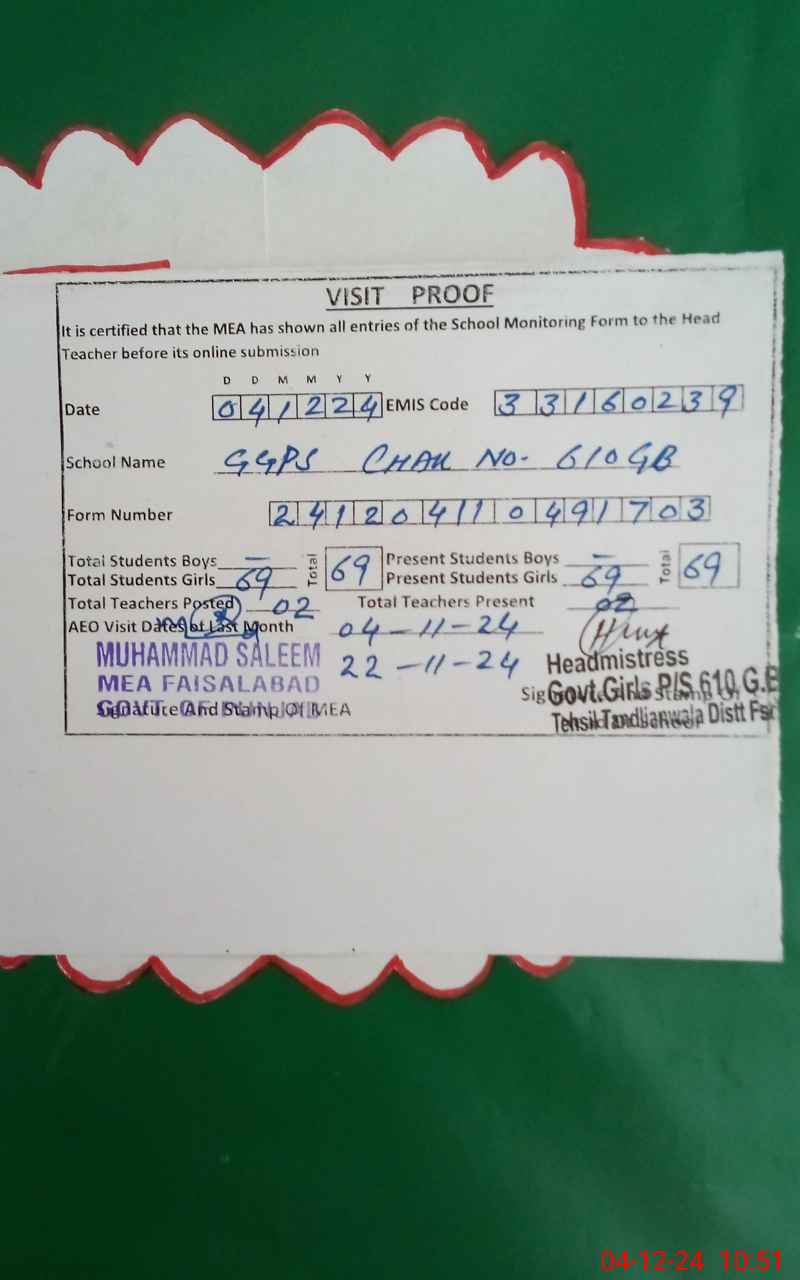 VISIT PROOF
It is certified that the MEA has shown all entries of the School Monitoring Form to the Head
Teacher before its online submission
D D M M Y Y
Date 041224 EMIS Code 33160239
School Name GGPS CHAK NO. 610 GB
Form Number 241204110491703
Total Students Boys — Total 69 Present Students Boys — Total 69
Total Students Girls 69 Present Students Girls 69
Total Teachers Posted 02 Total Teachers Present 02
AEO Visit Dates of Last Month 04-11-24
22-11-24
MUHAMMAD SALEEM
MEA FAISALABAD
Signature And Stamp Of MEA
Headmistress
Govt. Girls P/S 610 G.B
Tehsil Tandlianwala Distt
04-12-24 10:51